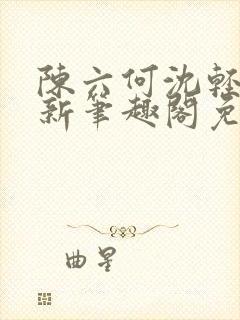 陳六何沈輕
新筆趣閣免
曲星